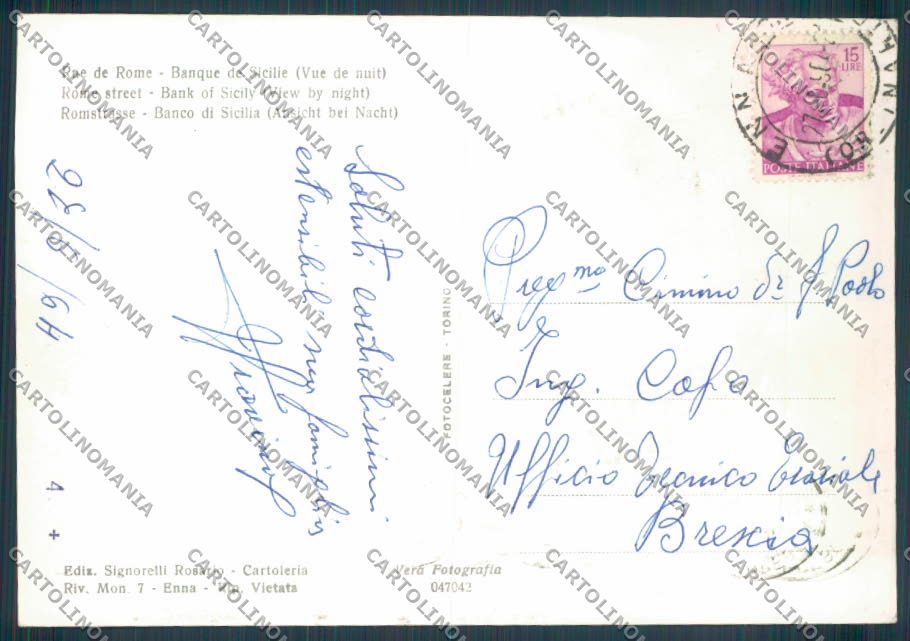 Rue de Rome - Banque de Sicilie (Vue de nuit)
Rome street - Bank of Sicily (View by night)
Romstrasse - Banco di Sicilia (Ansicht bei Nacht)
15
LIRE
POSTE ITALIANE
ENNA
Saluti cordialissimi
estensibili
famiglia
28/5/64
FOTOCELERE - TORINO
Preg.mo Cimino dr
Paolo
Ing. Capo
Ufficio Tecnico Erariale
Brescia
4. +
Ediz. Signorelli Rosario - Cartoleria
Riv. Mon. 7 - Enna - Rip. Vietata
Vera Fotografia
047042
CARTOLINOMANIA